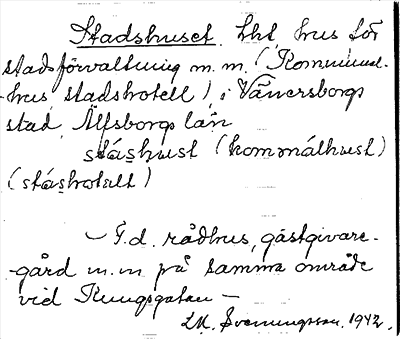 Stadshuset. tht, hus för
stadsförvaltning m.m. (Kommunal-
-hus, stadshotell), i Vänersborgs
stad, Älfsborgs län
stáshust (kommálhust)
(stáshotäll)
– F.d. rådhus, gästgivare-
-gård m.m på samma område
vid Kungsgatan –
Svenungsson. 1942.